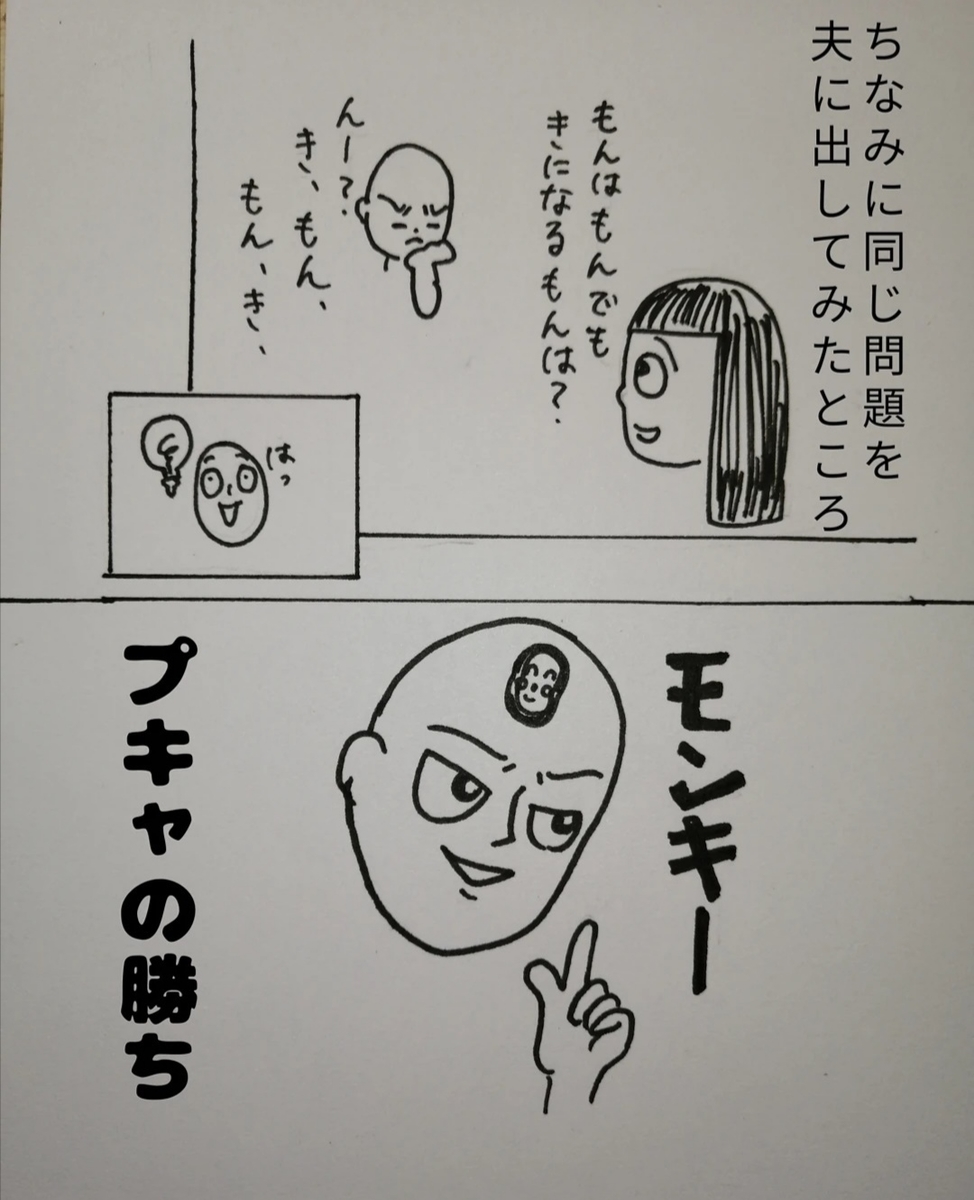 ちなみに同じ問題を
夫に出してみたところ
もんはもんでも
きになるもんは?
んー?
き、もん、
もん、き、
はっ
モンキー
プキャの勝ち